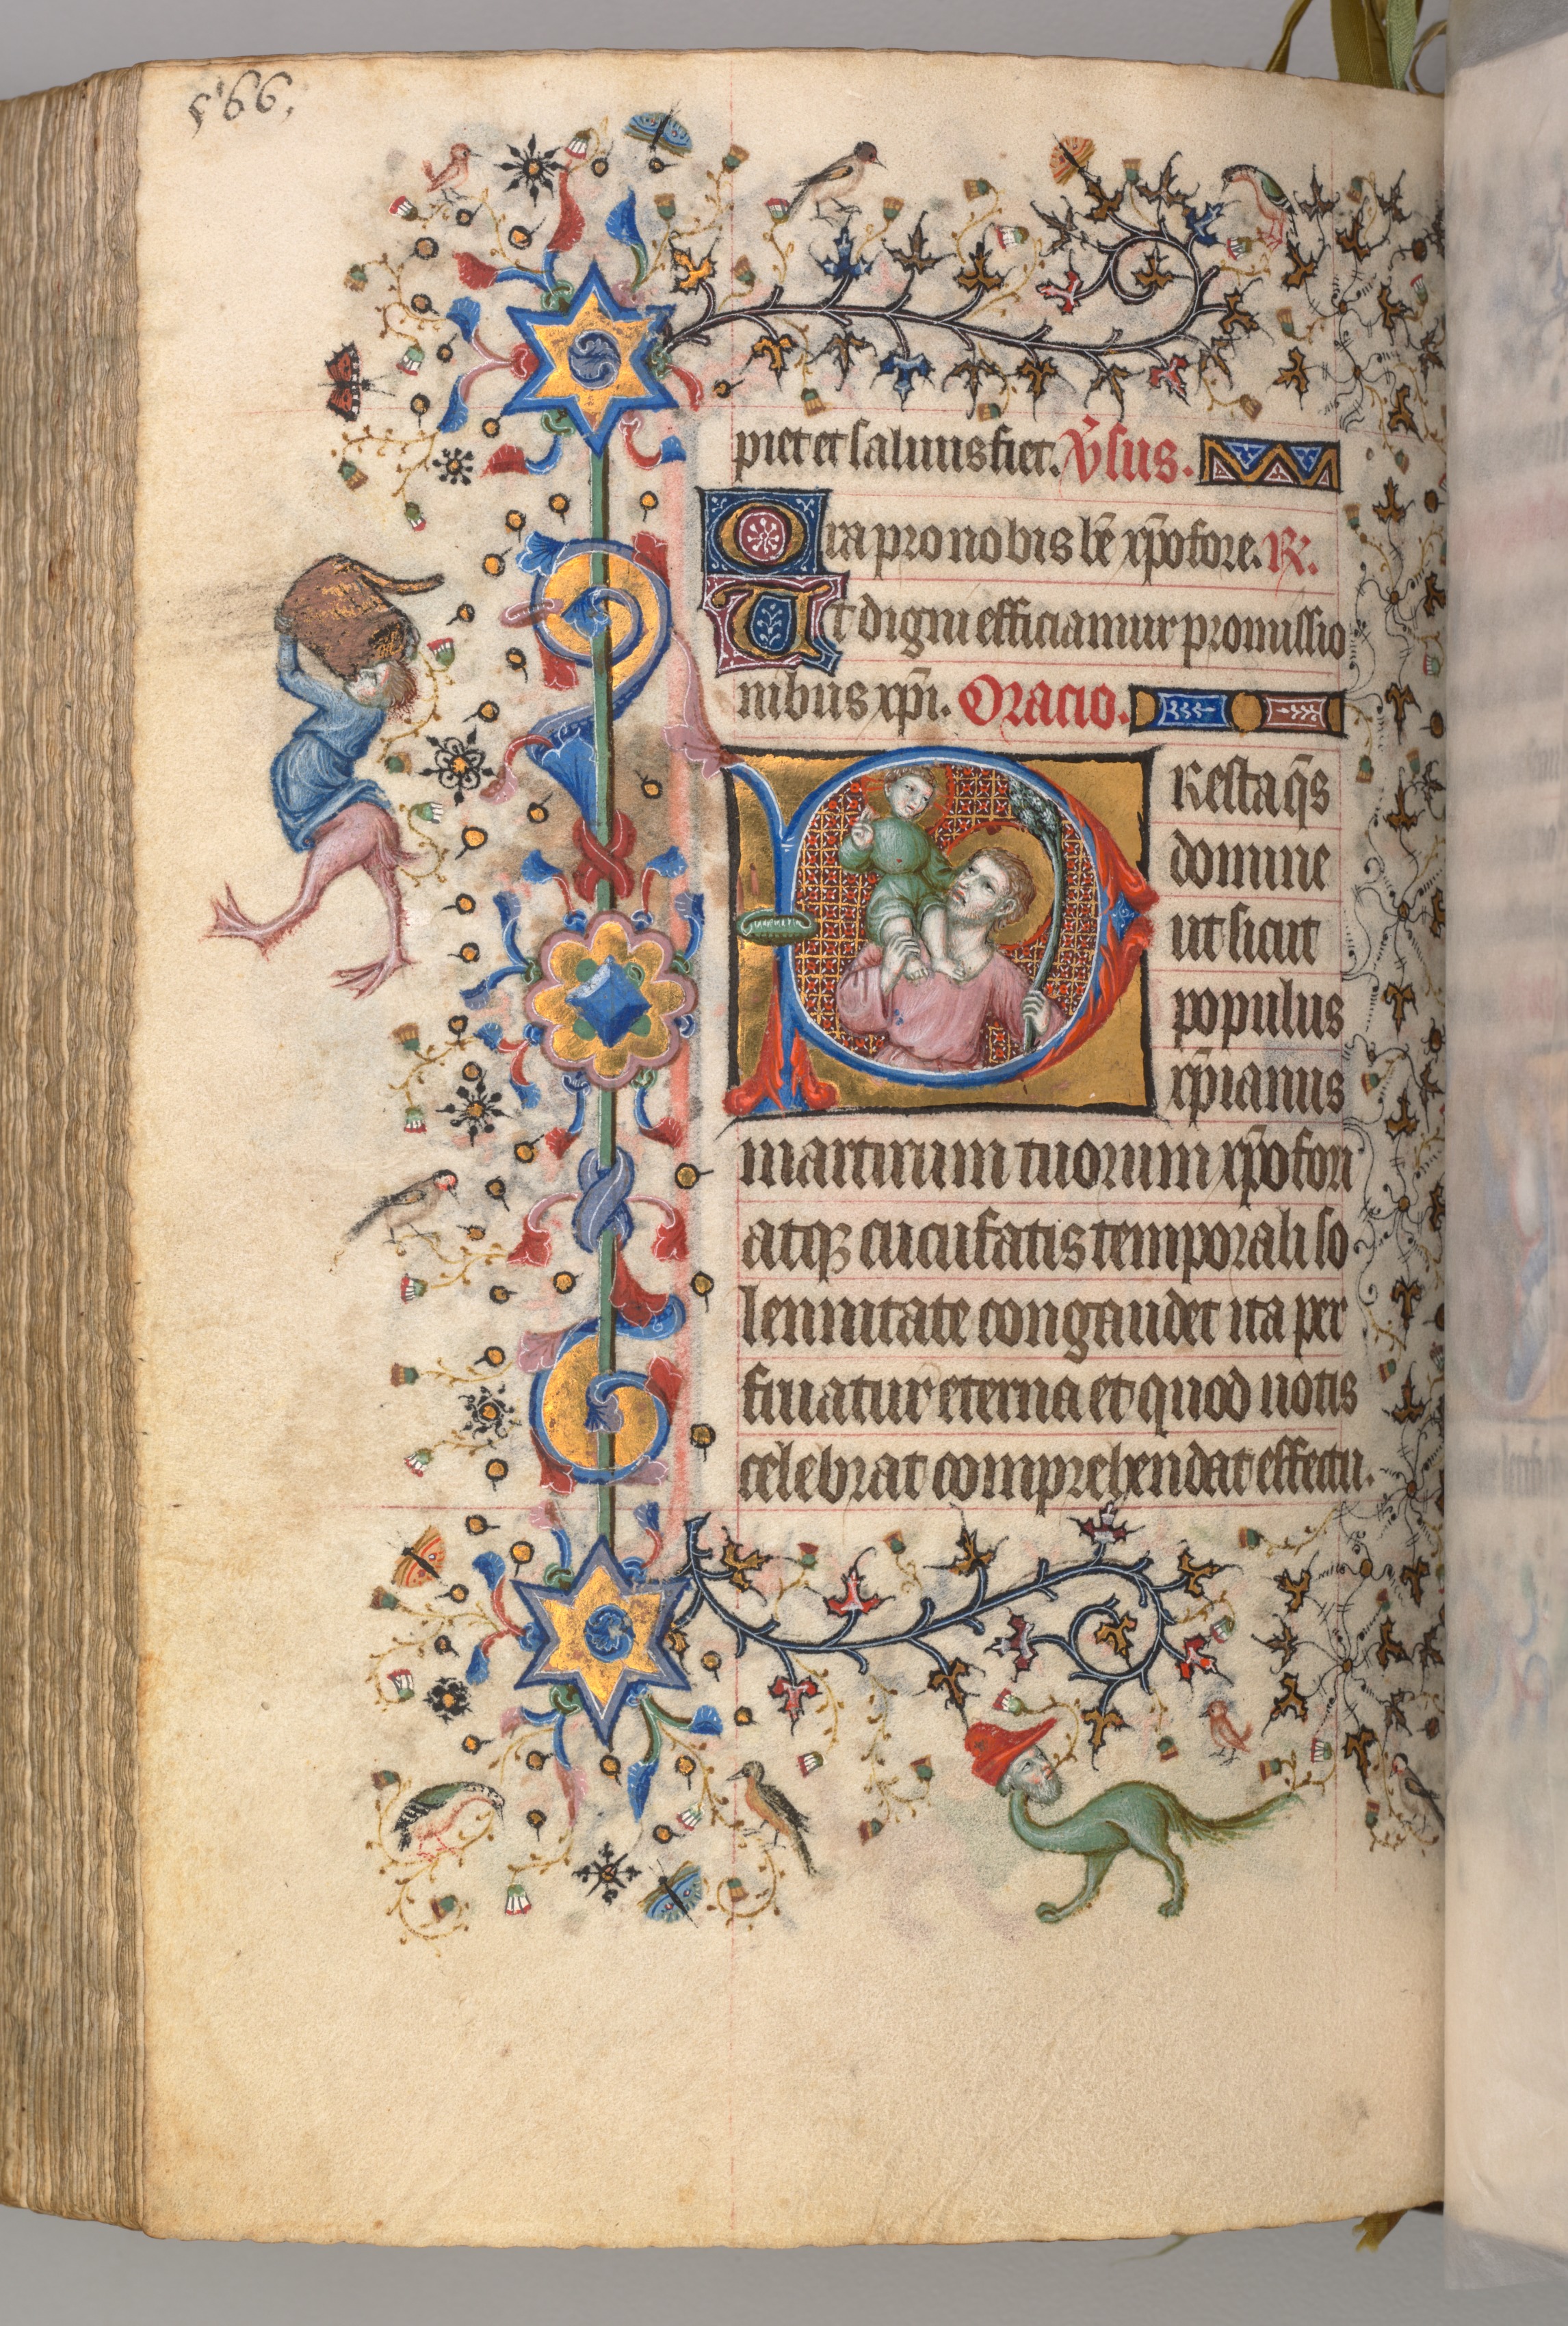 566.
piet et saluus fiet. V̄sus.
Ora pro nobis bē xp̄ofore. R.
Ut digni efficiamur promissio
nibus xp̄i. Oracio.
PResta q̄s
domine
ut sicut
populus
xp̄ianus
martirum tuorum xp̄ofori
atqꝫ cucufatis temporali so
lennitate congaudet ita per
fruatur eterna et quod uotis
celebrat comprehendat effectu.